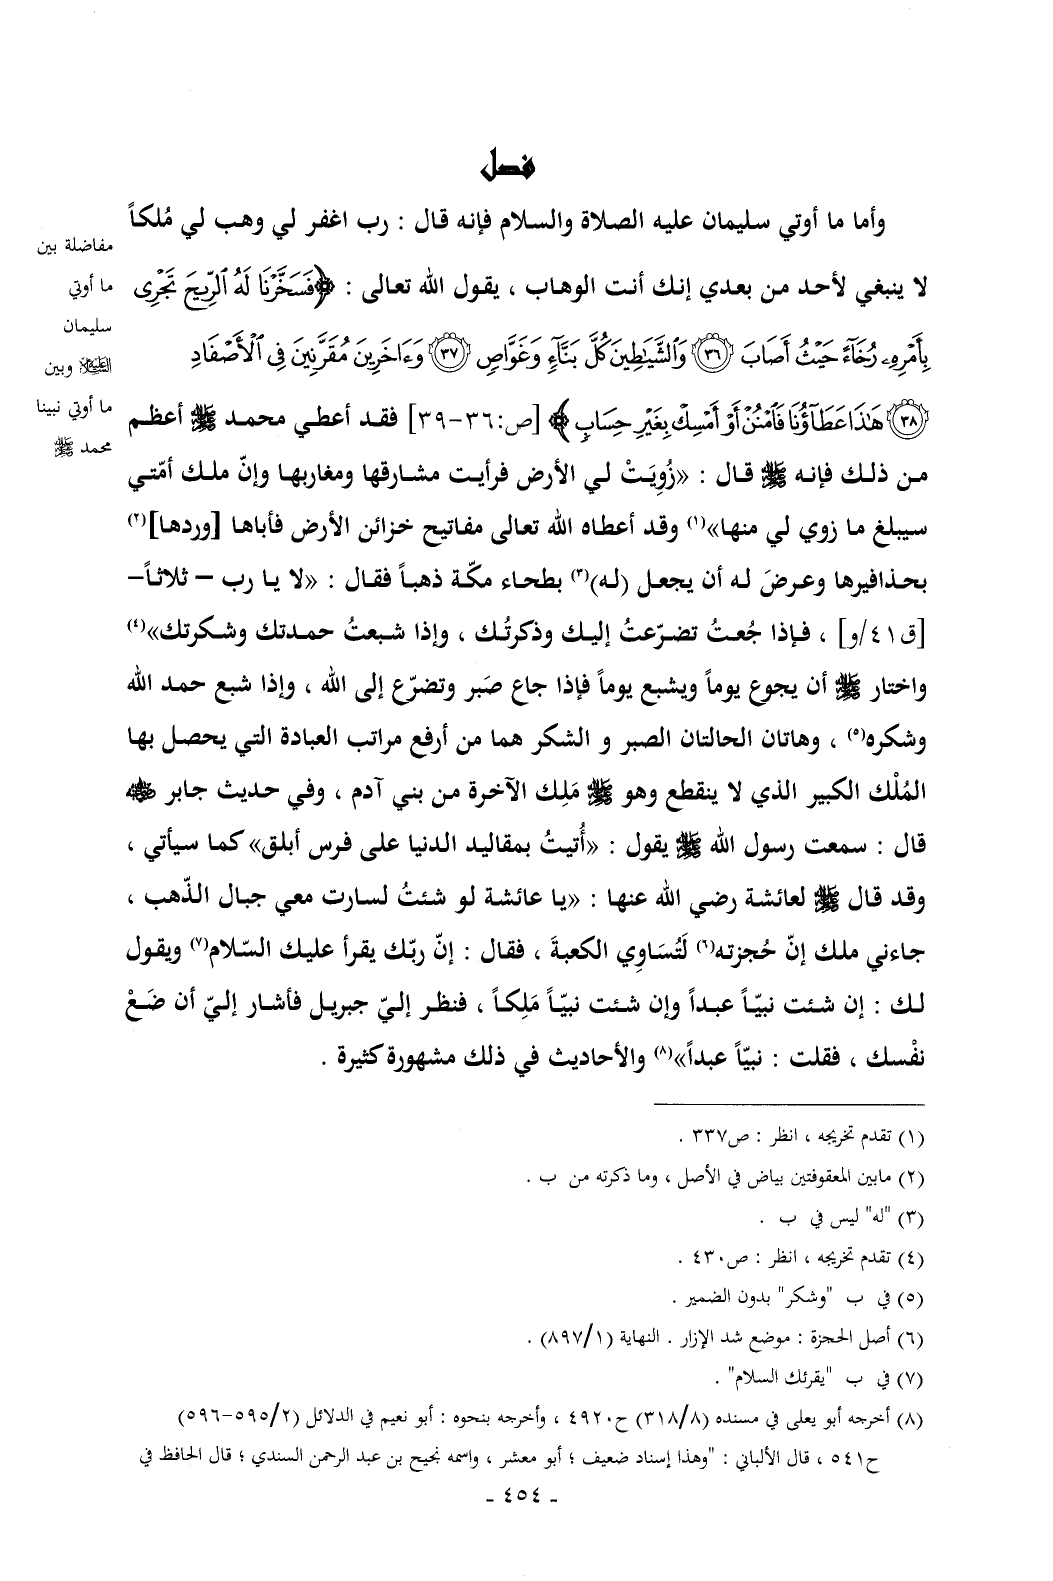 فصل
وأما ما أوتي سليمان عليه الصلاة والسلام فإنه قال : رب اغفر لي وهب لي مُلكاً
لا ينبغي لأحد من بعدي إنك أنت الوهاب ، يقول الله تعالى : ﴿فَسَخَّرْنَا لَهُ ٱلرِّيحَ تَجْرِى
بِأَمْرِهِۦ رُخَآءً حَيْثُ أَصَابَ ۝٣٦ وَٱلشَّيَـٰطِينَ كُلَّ بَنَّآءٍ وَغَوَّاصٍ ۝٣٧ وَءَاخَرِينَ مُقَرَّنِينَ فِى ٱلْأَصْفَادِ
۝٣٨ هَـٰذَا عَطَآؤُنَا فَٱمْنُنْ أَوْ أَمْسِكْ بِغَيْرِ حِسَابٍ﴾ [ص:٣٦-٣٩] فقد أعطي محمد ﷺ أعظم
من ذلك فإنه ﷺ قال : «زُوِيَتْ لي الأرض فرأيت مشارقها ومغاربها وإنّ ملك أمّتي
سيبلغ ما زوي لي منها»(١) وقد أعطاه الله تعالى مفاتيح خزائن الأرض فأباها [وردها](٢)
بحذافيرها وعرضَ له أن يجعل (له)(٣) بطحاء مكّة ذهباً فقال : «لا يا رب – ثلاثاً–
[ق٤١/و] ، فإذا جُعتُ تضرّعتُ إليك وذكرتُك ، وإذا شبعتُ حمدتك وشكرتك»(٤)
واختار ﷺ أن يجوع يوماً ويشبع يوماً فإذا جاع صَبر وتضرّع إلى الله ، وإذا شبع حمد الله
وشكره(٥) ، وهاتان الحالتان الصبر و الشكر هما من أرفع مراتب العبادة التي يحصل بها
المُلْك الكبير الذي لا ينقطع وهو ﷺ مَلِك الآخرة من بني آدم ، وفي حديث جابر رضي الله عنه
قال : سمعت رسول الله ﷺ يقول : «أُتيتُ بمقاليد الدنيا على فرس أبلق» كما سيأتي ،
وقد قال ﷺ لعائشة رضي الله عنها : «يا عائشة لو شئتُ لسارت معي جبال الذّهب ،
جاءني ملك إنّ حُجزته(٦) لَتُسَاوِي الكعبةَ ، فقال : إنّ ربّك يقرأ عليك السّلام(٧) ويقول
لك : إن شئت نبيّاً عبداً وإن شئت نبيّاً مَلِكاً ، فنظر إليّ جبريل فأشار إليّ أن ضَعْ
نفْسك ، فقلت : نبيّاً عبداً»(٨) والأحاديث في ذلك مشهورة كثيرة .
مفاضلة بين
ما أوتي
سليمان
عليه السلام وبين
ما أوتي نبينا
محمد ﷺ
(١) تقدم تخريجه ، انظر : ص٣٣٧ .
(٢) مابين المعقوفتين بياض في الأصل ، وما ذكرته من ب .
(٣) "له" ليس في ب .
(٤) تقدم تخريجه ، انظر : ص٤٣٠ .
(٥) في ب "وشكر" بدون الضمير .
(٦) أصل الحجزة : موضع شد الإزار . النهاية (٨٩٧/١) .
(٧) في ب "يقرئك السلام" .
(٨) أخرجه أبو يعلى في مسنده (٣١٨/٨) ح٤٩٢٠ ، وأخرجه بنحوه : أبو نعيم في الدلائل (٥٩٥/٢-٥٩٦)
ح٥٤١ ، قال الألباني : "وهذا إسناد ضعيف ؛ أبو معشر ، واسمه نجيح بن عبد الرحمن السندي ؛ قال الحافظ في
- ٤٥٤ -